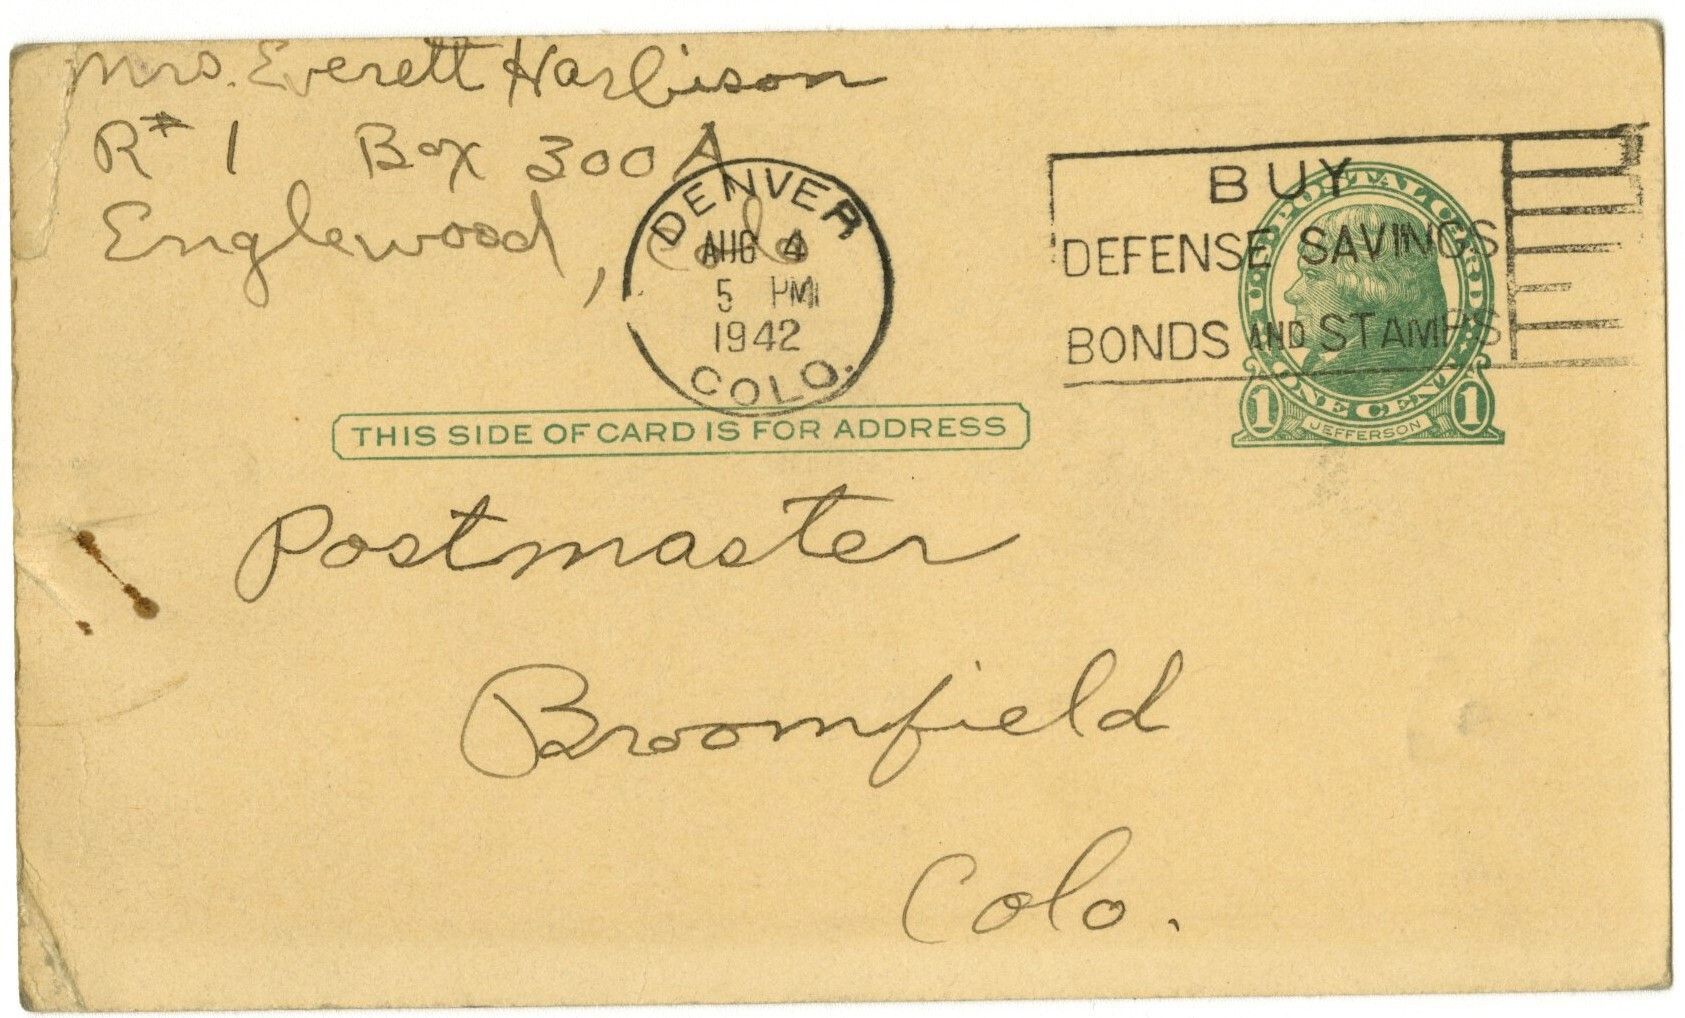 Mrs. Everett Harbison
R# 1 Box 300A
Englewood, Colo
DENVER
AUG 4
5 PM
1942
COLO.
BUY
DEFENSE SAVINGS
BONDS AND STAMPS
U.S. POSTAL CARD
ONE CENT
1 1
JEFFERSON
THIS SIDE OF CARD IS FOR ADDRESS
Postmaster
Broomfield
Colo.